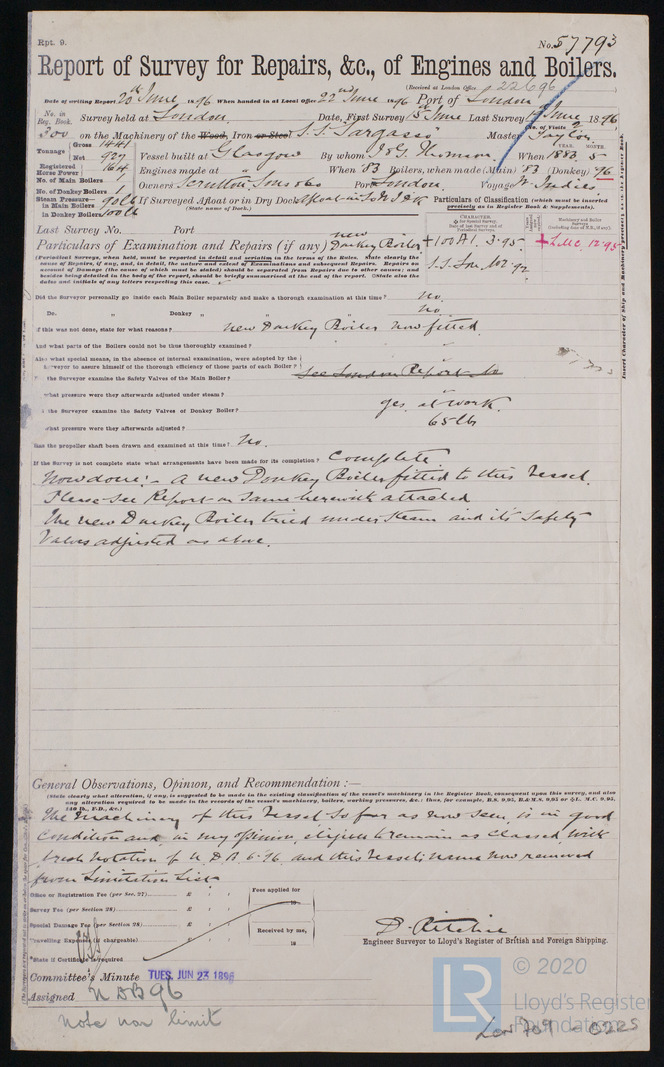 Rpt. 9.
No. 57793
Report of Survey for Repairs, &c., of Engines and Boilers.
(Received at London Office 22 6 96
Date of writing Report 20th June 1896 When handed in at Local Office 22nd June 1896 Port of London
No. in Reg. Book. Survey held at London Date, First Survey 15th June Last Survey June 1896
300 on the Machinery of the Wood, Iron or Steel S.S. Sargasso Master Taylor
No. of Visits 2
Tonnage Gross 1441
Net 927
Vessel built at Glasgow By whom J & G Thomson When 1883 5
YEAR. MONTH.
Registered Horse Power 164
Engines made at " When 83 Boilers, when made (Main) 83 (Donkey) 96
No. of Main Boilers 1
No. of Donkey Boilers 1
Owners Scrutton, Sons & Co Port London Voyage W. Indies
Steam Pressure in Main Boilers 90 lb
in Donkey Boilers 100 lb
If Surveyed Afloat or in Dry Dock Afloat in
(State name of Dock.)
Particulars of Classification (which must be inserted precisely as in Register Book & Supplements).
Last Survey No. Port
Particulars of Examination and Repairs (if any) new Donkey Boiler
+100A1. 3.95
+LMC. 12.95
S.S. Lon. No2-92
(Periodical Surveys, when held, must be reported in detail and seriatim in the terms of the Rules. State clearly the
cause of Repairs, if any, and, in detail, the nature and extent of Examinations and subsequent Repairs. Repairs on
account of Damage (the cause of which must be stated) should be separated from Repairs due to other causes; and
besides being detailed in the body of the report, should be briefly summarised at the end of the report. State also the
dates and initials of any letters respecting this case.
Did the Surveyor personally go inside each Main Boiler separately and make a thorough examination at this time? no.
Do. " Donkey " " " no.
If this was not done, state for what reasons? new Donkey Boiler now fitted.
And what parts of the Boilers could not be thus thoroughly examined? "
Also what special means, in the absence of internal examination, were adopted by the
Surveyor to assure himself of the thorough efficiency of those parts of each Boiler? See London Report No
the Surveyor examine the Safety Valves of the Main Boiler?
what pressure were they afterwards adjusted under steam? "
the Surveyor examine the Safety Valves of Donkey Boiler? yes. at work.
what pressure were they afterwards adjusted? 65 lbs
Has the propeller shaft been drawn and examined at this time? No.
If the Survey is not complete state what arrangements have been made for its completion? Complete
Now done:- A new Donkey Boiler fitted to this Vessel.
Please see Report on same herewith attached
The new Donkey Boiler tried under steam and its Safety
Valves adjusted as above.
General Observations, Opinion, and Recommendation:—
(State clearly what alteration, if any, is suggested to be made in the existing classification of the vessel's machinery in the Register Book, consequent upon this survey, and also
any alteration required to be made in the records of the vessel's machinery, boilers, working pressures, &c.: thus, for example, B.S. 9,95, B.&M.S. 9,95 or L.M.C. 9,95,
140 lb., F.D., &c.)
The Machinery of this Vessel so far as now seen, is in good
condition and in my opinion, eligible to remain as classed with
fresh notation of N.D.B 6-96. and this vessel's name now removed
from Limitation List.
Office or Registration Fee (per Sec. 27) £ : :
Survey Fee (per Section 28) £ : :
Special Damage Fee (per Section 28) £ : :
Travelling Expenses (if chargeable) £ : :
Fees applied for
18
Received by me,
18
*State if Certificate is required
D. Ritchie
Engineer Surveyor to Lloyd's Register of British and Foreign Shipping.
Committee's Minute TUES. JUN 23 1896
Assigned NDB 96
Note nor limit
LR
© 2020
Lloyd's Register
Foundation
Lon 709 - 0225